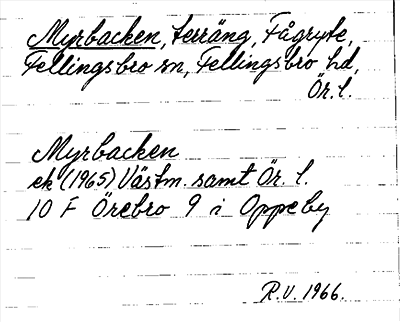 Myrbacken, terräng, Fågryte,
Fellingsbro sn, Fellingsbro hd,
Ör.l.
Myrbacken
ek (1965) Västm. samt Ör. l.
10 F Örebro 9 i Oppeby
R.V. 1966.